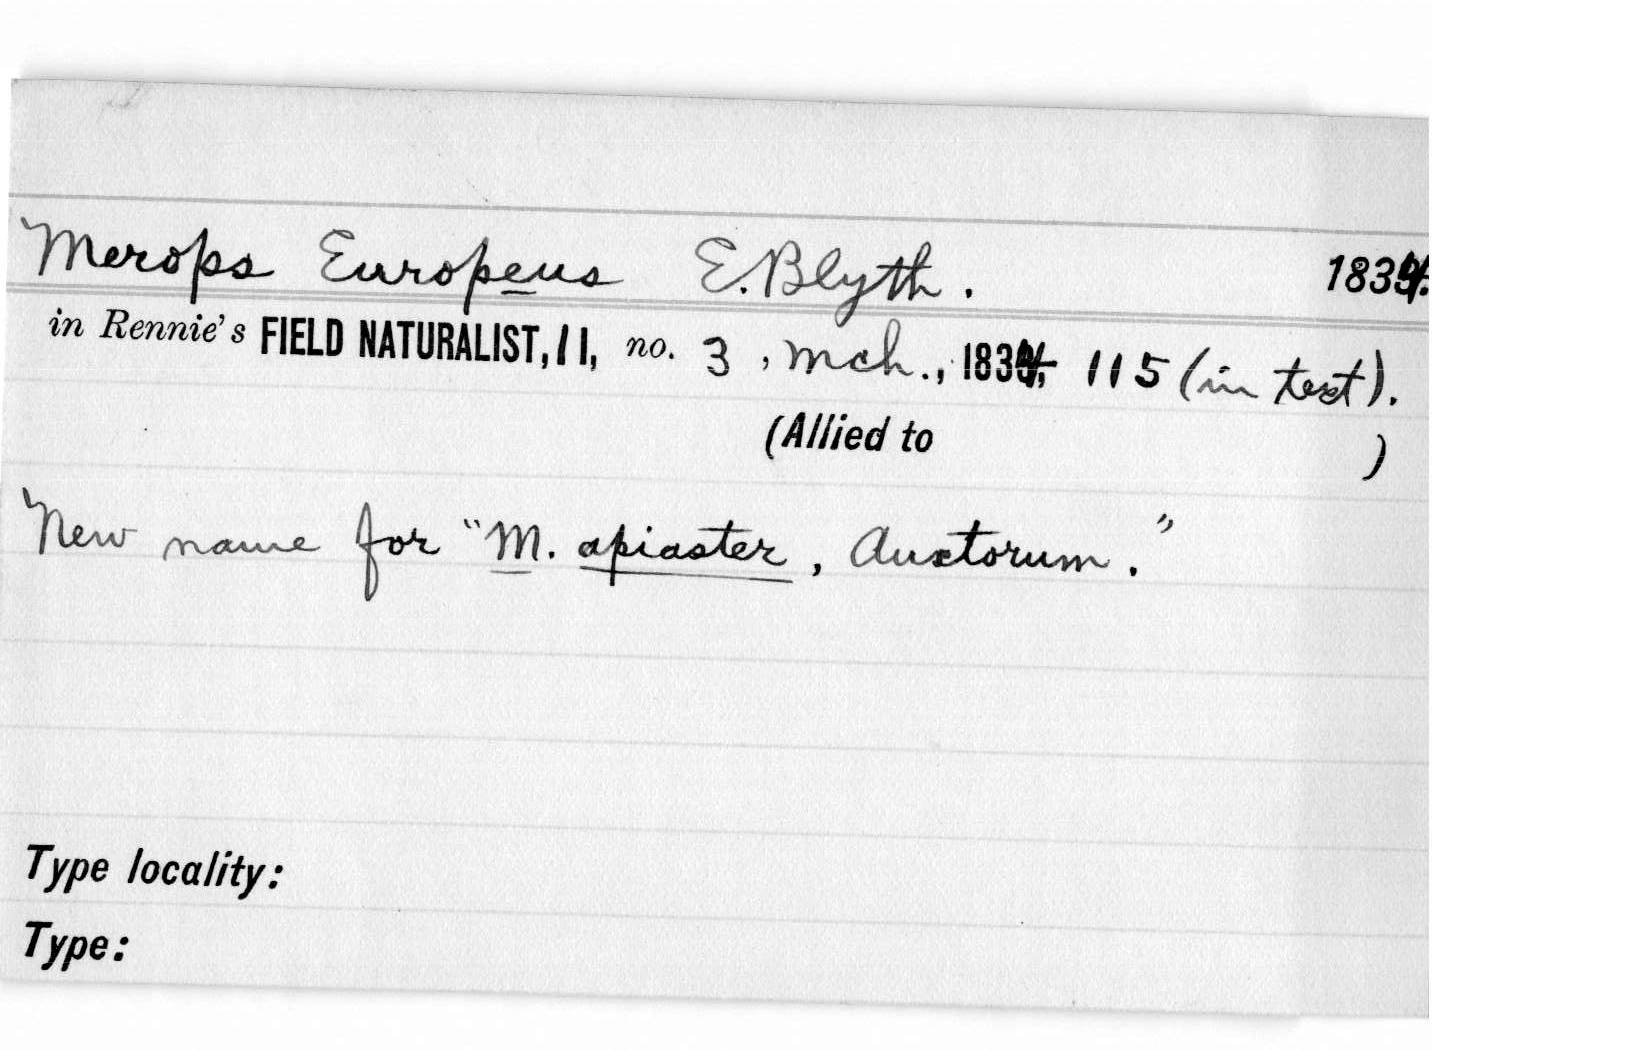 Merops Europeus E. Blyth. 1834.
in Rennie's FIELD NATURALIST, II, no. 3, Mch., 1834, 115 (in text).
(Allied to )
New name for "M. apiaster, Auctorum."
Type locality:
Type: